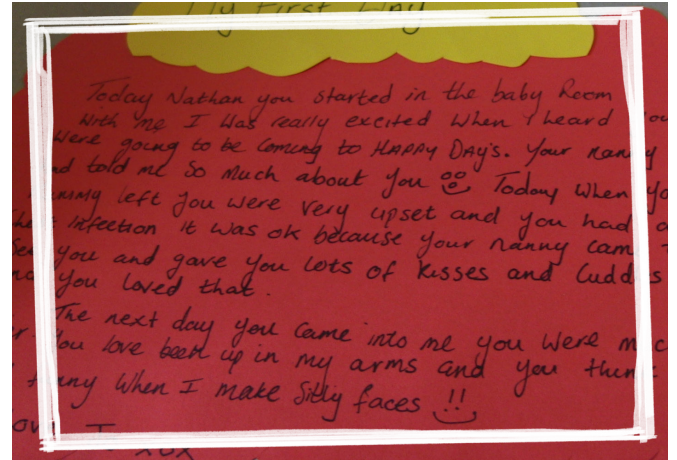 My First Day
Today Nathan you started in the baby Room
with me I was really excited when I heard you
were going to be coming to HAPPY DAY'S. Your nanny
nd told me So much about you Today when yo
mummy left you were very upset and you had a
chest infection it was ok because your nanny cam
See you and gave you lots of kisses and Cuddes
nd you loved that.
The next day you came into me you were muc
You love been up in my arms and you think
funny when I make Silly faces !!
xox